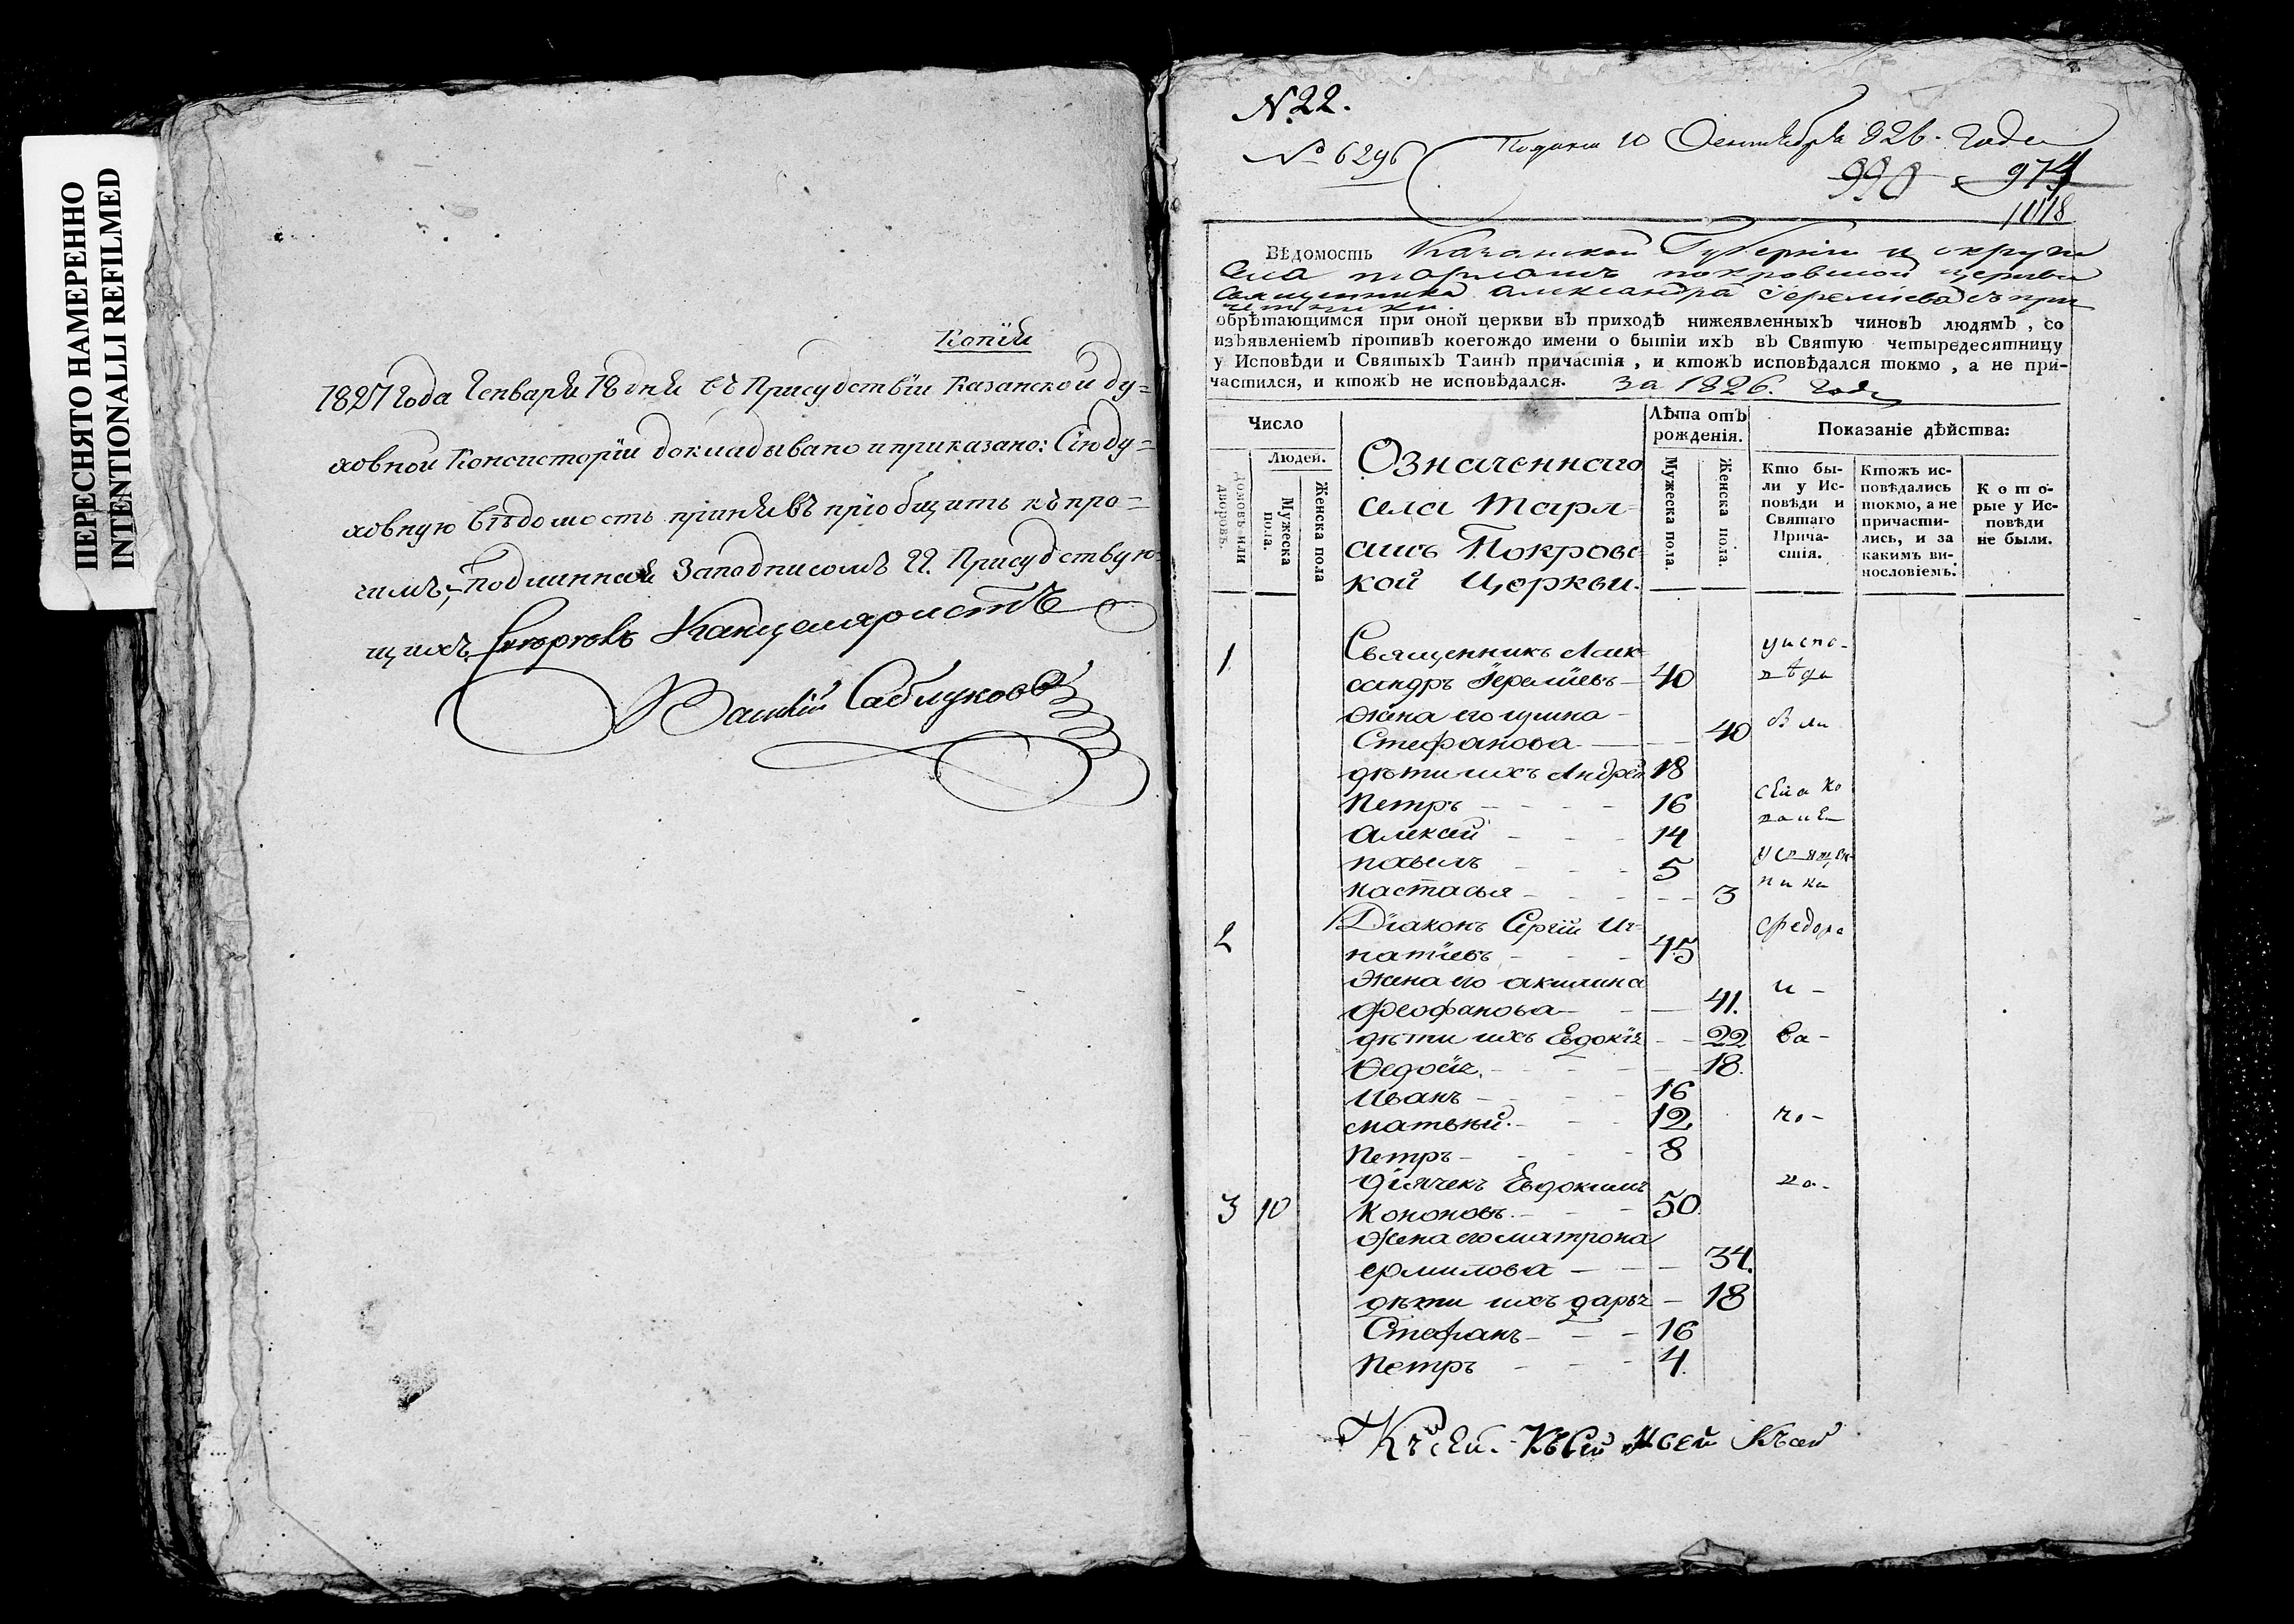 ПЕРЕСНЯТО НАМЕРЕННО
INTENTIONALLI REFILMED
Копія
1827 Года Генваря 18 дня въ Присудствіи Казанской ду=
ховной Консисторіи докладывано и приказано: Сію ду=
ховную вѣдомость принявъ пріобщить къ про=
чимъ, Подлинная За подписомъ Гг. Присудствую=
щихъ Канцеляристъ
Василій Саблуковъ
N. 22.
№ 6296 Подана 10 Сентября 826 Года
990 974
1018
Вѣдомость Казанской Губерніи и округи
села тарлашъ покровской церкви
священника александра Іереміева съ при
четники
обрѣтающимся при оной церкви въ приходѣ нижеявленныхъ чиновъ людямъ, со
изъявленіемъ противъ коегождо имени о бытіи ихъ въ Святую четыредесятницу
у Исповѣди и Святыхъ Таинъ причастія, и ктожъ исповѣдался токмо, а не при-
частился, и ктожъ не исповѣдался. За 1826. Годъ
Число
Людей.
Домовъ или дворовъ.
Мужеска пола.
Женска пола
Означеннаго
села Тарл-
ашъ Покровс-
кой Церкви.
Лѣта отъ
рожденія.
Мужеска пола.
Женска пола.
Показаніе дѣйства:
Кто бы-
ли у Ис-
повѣди и
Святаго
Прича-
стія.
Ктожъ ис-
повѣдались
токмо, а не
причасти-
лись, и за
какимъ ви-
нословіемъ.
Кото-
рые у Ис-
повѣди
не были.
1 Священникъ Алек- у испо-
сандръ Іереміевъ 40 вѣди
Жена его ирина
Стефанова 40 были
дѣти ихъ Андрей 18
Петръ 16 села Ко
алексей 14
павелъ 5 у священ-
настасья 3 ника
2 Діаконъ Сергій Иг- Федора
натіевъ 45
Жена его акилина и
Феофанова 41.
дѣти ихъ Евдокія 22 ва-
Федосія 18.
Иванъ 16
матвѣй 12 но-
Петръ 8
дьячекъ Евдокимъ ва.
3 10 Кононовъ 50
Жена его матрона
ермилова 34.
дѣти ихъ дарья 18
Стефанъ 16
Петръ 4.
Къ сей Къ Сей Къ сей Къ сей